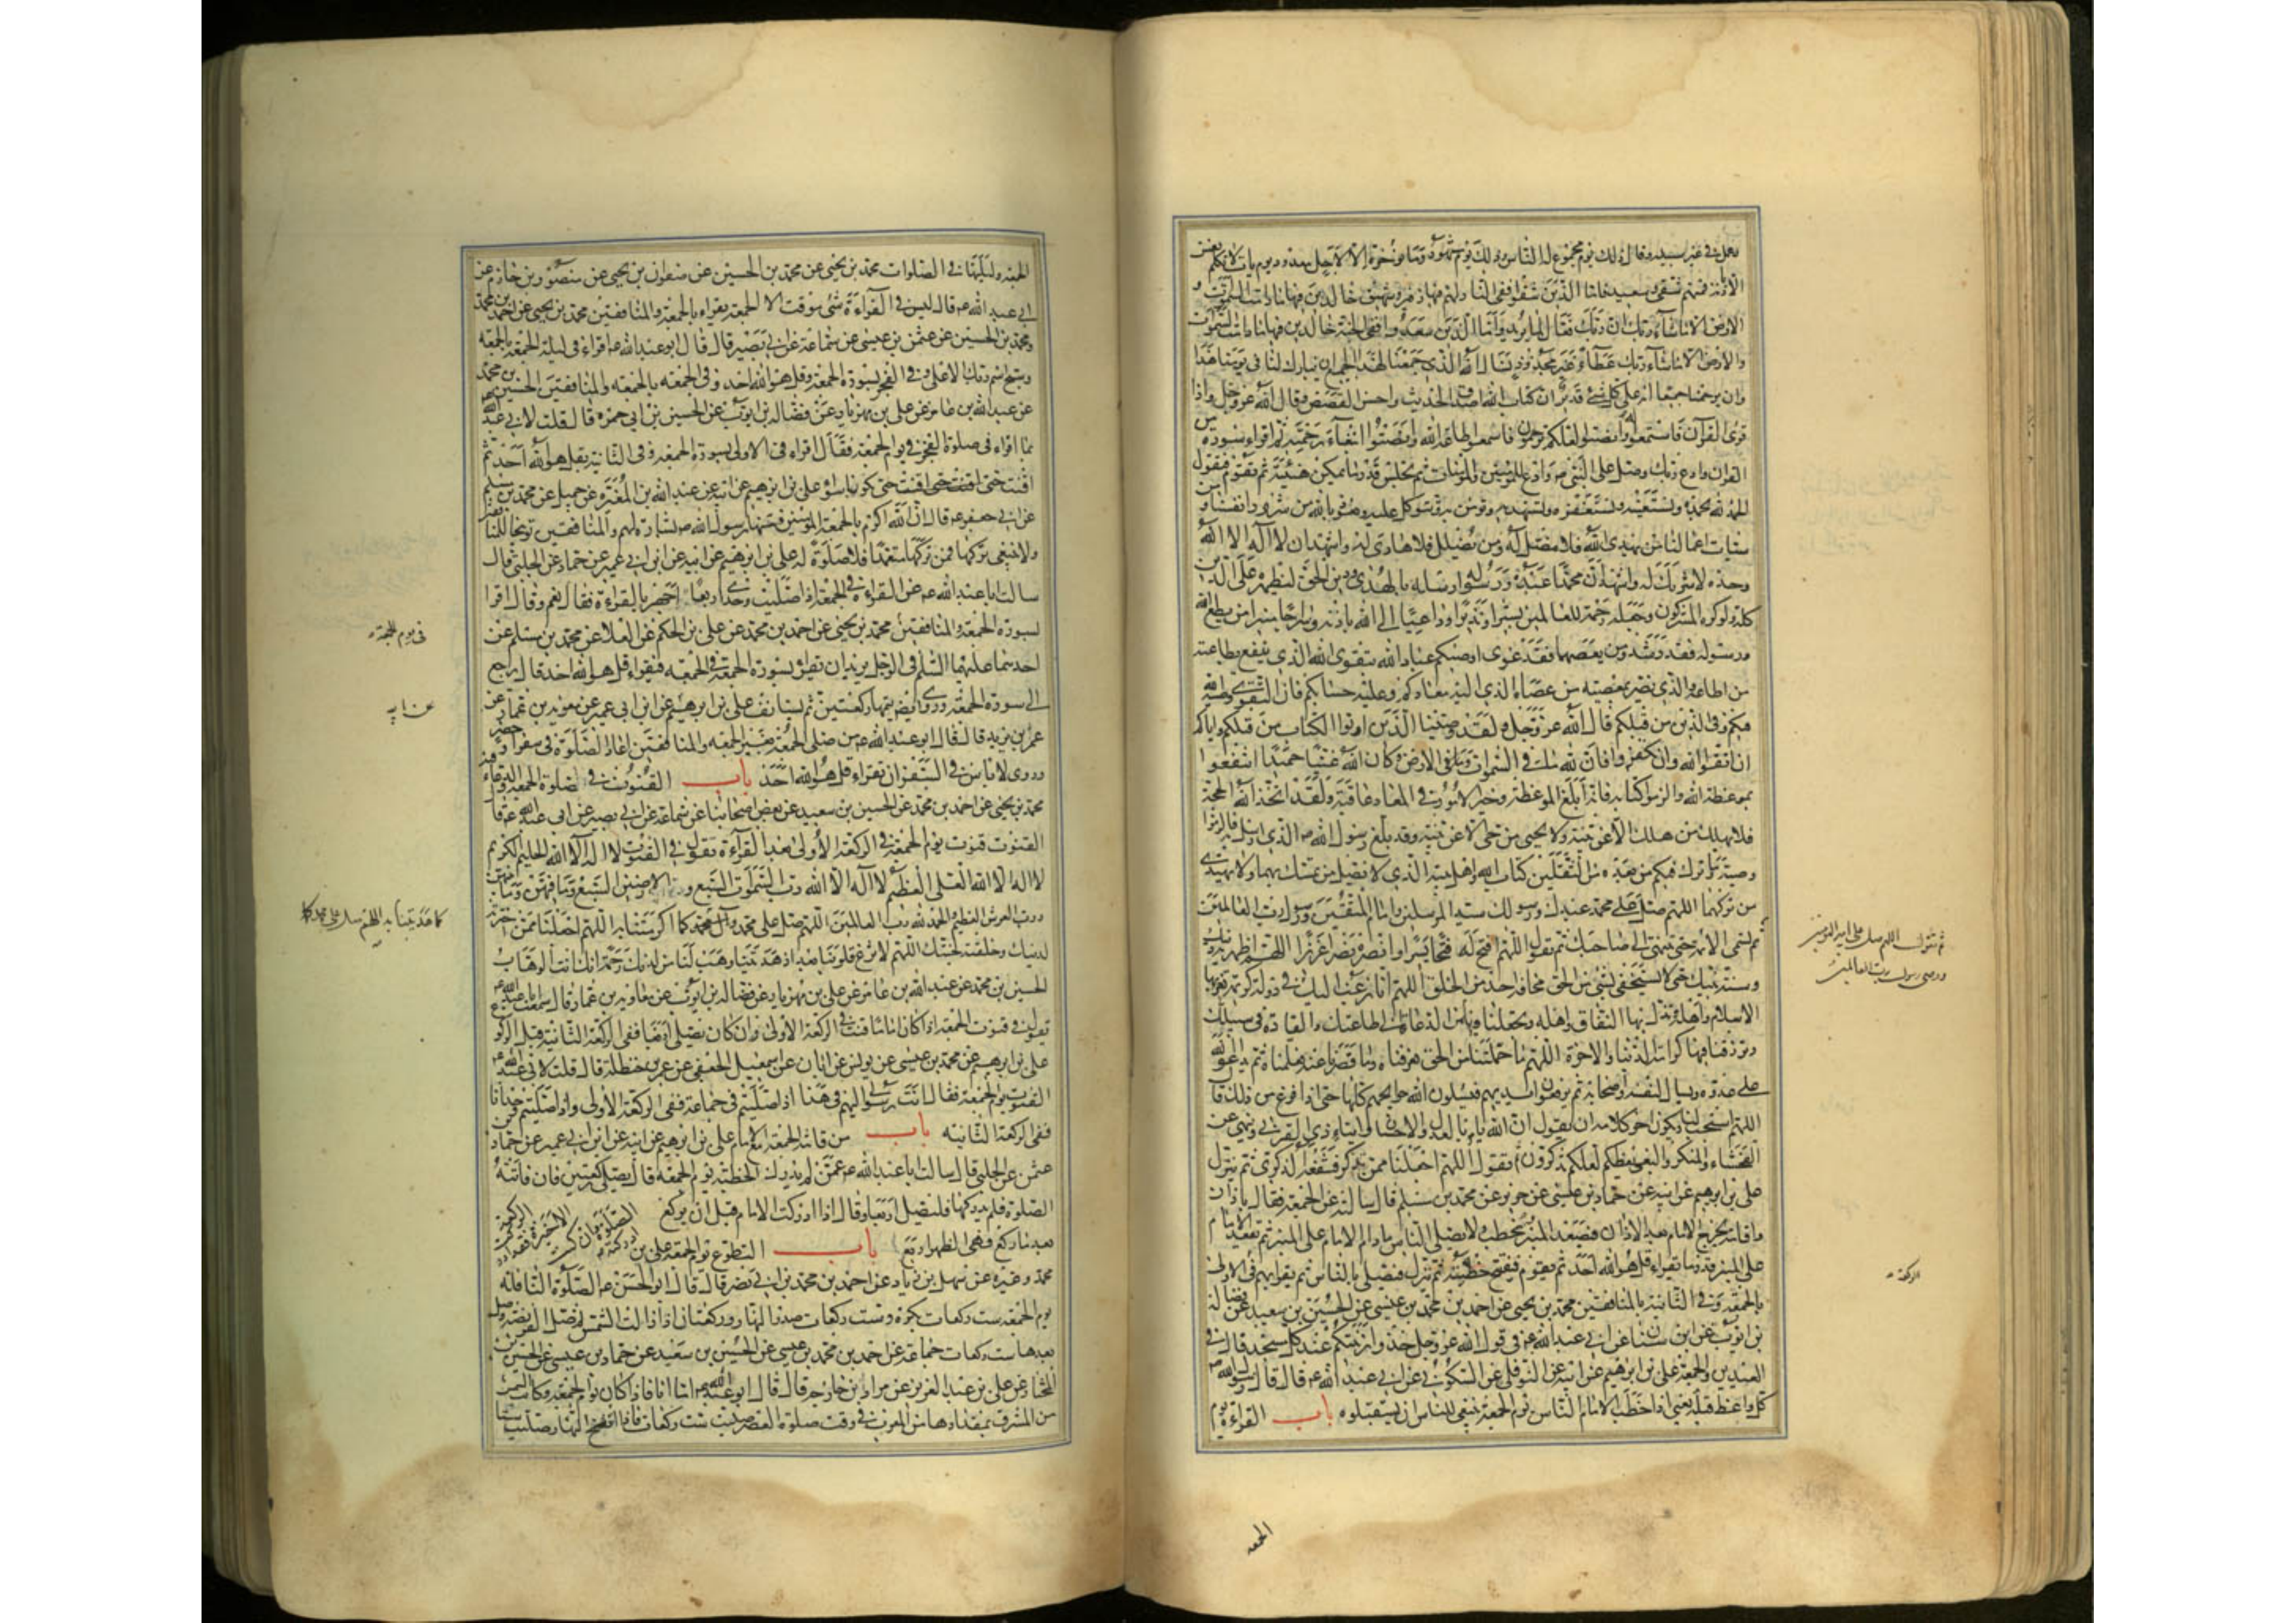 يجعل في غير سبيله وقال ذلك يوم مجموع له الناس وذلك يوم مشهود وما نؤخره الا لاجل معدود يوم يات لا تكلم نفس
الا باذنه فمنهم شقي وسعيد فاما الذين شقوا ففي النار لهم فيها زفير وشهيق خالدين فيها ما دامت السموات و
الارض الا ما شاء ربك ان ربك فعال لما يريد واما الذين سعدوا ففي الجنة خالدين فيها ما دامت السموات
والارض الا ما شاء ربك عطاء غير مجذوذ نسال الله الذي جمعنا لهذا الجمع ان يبارك لنا في يومنا هذا
وان يرحمنا جميعا انه على كل شئ قدير ان كتاب الله اصدق الحديث واحسن القصص وقال الله عز وجل واذا
قرئ القرآن فاستمعوا له وانصتوا لعلكم ترحمون فاسمعوا طاعة الله وانصتوا ابتغاء رحمته ثم اقراء سورة من
القران وادع ربك وصل على النبي ص وادع للمؤمنين والمؤمنات ثم تجلس قدر ما تمكن هنيئة ثم تقوم فتقول
الحمد لله نحمده ونستعينه ونستغفره ونستهديه ونؤمن به ونتوكل عليه ونعوذ بالله من شرور انفسنا و من
سيئات اعمالنا من يهدى الله فلا مضل له ومن يضلل فلا هادى له واشهد ان لا اله الا الله
وحده لا شريك له واشهد ان محمدا عبده ورسوله ارسله بالهدى ودين الحق ليظهره على الدين
كله ولو كره المشركون وجعله رحمة للعالمين بشيرا ونذيرا وداعيا الى الله باذنه وسراجا منيرا من يطع الله
ورسوله فقد رشد ومن يعصهما فقد غوى اوصيكم عباد الله بتقوى الله الذي ينفع بطاعته
من اطاعه والذي يضر بمعصيته من عصاه الذي اليه معادكم وعليه حسابكم فان التقوى وصية الله
فيكم وفي الذين من قبلكم قال الله عز وجل ولقد وصينا الذين اوتوا الكتاب من قبلكم واياكم
ان اتقوا الله وان تكفروا فان لله ما في السموات وما في الارض وكان الله غنيا حميدا انتفعوا
بموعظة الله والزموا كتابه فانه ابلغ الموعظة وخير الامور في المعاد عاقبة ولقد اتخذ الله الحجة
فلا يهلك من هلك الا عن بينة ولا يحيى من حى الا عن بينة وقد بلغ رسول الله ص الذي ارسل به فالزموا
وصيته وما ترك فيكم من بعده من الثقلين كتاب الله واهل بيته الذي لا يضل من تمسك بهما ولا يهتدي
من تركهما اللهم صل على محمد عبدك ورسولك سيد المرسلين وامام المتقين ورسول رب العالمين
ثم تسمى الائمة حتى تنتهى الى صاحبك ثم تقول اللهم افتح له فتحا يسيرا وانصره نصرا عزيزا اللهم اظهر به دينك
وسنة نبيك حتى لا يستخفي بشئ من الحق مخافة احد من الخلق اللهم انا نرغب اليك في دولة كريمة تعز بها
الاسلام واهله وتذل بها النفاق واهله وتجعلنا فيها من الدعاة الى طاعتك والقادة في سبيلك
وترزقنا فيها كرامة الدنيا والاخرة اللهم ما حملتنا من الحق فعرفناه وما قصرنا عنه فعلمناه ثم يدعو الله
على عدوه ويسال لنفسه واصحابه ثم يرفعون ايديهم فيسئلون الله حوائجهم كلها حتى اذا فرغ من ذلك قال
اللهم استجب لنا ويكون اخر كلامه ان يقول ان الله يامر بالعدل والاحسان وايتاء ذي القربى وينهى عن
الفحشاء والمنكر والبغي يعظكم لعلكم تذكرون ثم يقول اللهم اجعلنا ممن تذكر فتنفعه الذكرى ثم ينزل
على بن ابرهيم عن ابيه عن حماد بن عيسى عن حريز عن محمد بن مسلم قال سالته عن الجمعة فقال باذان
واقامة يخرج الامام بعد الاذان فيصعد المنبر فيخطب ولا يصلي الناس مادام الامام على المنبر ثم يقعد الامام
على المنبر قدر ما يقراء قل هو الله احد ثم يقوم فيفتتح خطبته ثم ينزل فيصلي بالناس ثم يقرا بهم في الاولى
بالجمعة وفي الثانية بالمنافقين محمد بن يحيى عن احمد بن محمد بن عيسى عن الحسين بن سعيد عن فضالة
بن ايوب عن ابن سنان عن ابي عبد الله ع في قول الله عز وجل خذوا زينتكم عند كل مسجد قال في
العيدين والجمعة على بن ابرهيم عن ابيه عن النوفلي عن السكوني عن ابي عبد الله ع قال قال رسول الله ص
كل واعظ قبلة يعني اذا خطب الامام الناس يوم الجمعة ينبغي للناس ان يستقبلوه باب القراءة يوم
ثم تقول اللهم صل على امير المؤمنين
ووصى رسول رب العالمين
الجمعه
الجمعة وليلتها في الصلوات محمد بن يحيى عن محمد بن الحسين عن صفوان بن يحيى عن منصور بن حازم عن
ابي عبد الله ع قال ليس في القراءة شئ موقت الا الجمعة يقراء بالجمعة والمنافقين محمد بن يحيى عن احمد بن محمد
ومحمد بن الحسين عن عثمن بن عيسى عن سماعة عن ابي بصير قال قال ابو عبد الله ع اقراء في ليلة الجمعة بالجمعة
وسبح اسم ربك الاعلى وفي الفجر بسورة الجمعة وقل هو الله احد وفي الجمعة بالجمعة والمنافقين الحسين بن محمد
عن عبد الله بن عامر عن على بن مهزيار عن فضالة بن ايوب عن الحسين بن ابي حمزه قال قلت لابي عبد الله
بما اقراء في صلوة الفجر في يوم الجمعة فقال اقراء في الاولى بسورة الجمعة وفي الثانية بقل هو الله احد ثم
اقنت حتى اقنت حتى تكونا سواء على بن ابرهيم عن ابيه عن عبد الله بن المغيرة عن جميل عن محمد بن مسلم
عن ابي جعفر ع قال ان الله اكرم بالجمعة المؤمنين فسنها رسول الله ص بشارة لهم والمنافقين توبيخا للمنافقين
ولا ينبغي تركها فمن تركها متعمدا فلا صلوة له على بن ابرهيم عن ابيه عن ابن ابي عمير عن حماد عن الحلبي قال
سالت ابا عبد الله ع عن القراءة في الجمعة اذا صليت وحدي اربعا اجهر بالقراءة فقال نعم وقال اقرا
بسورة الجمعة والمنافقين محمد بن يحيى عن احمد بن محمد عن على بن الحكم عن العلا عن محمد بن مسلم عن
احدهما عليهما السلم في الرجل يريد ان يقرا بسورة الجمعة في الجمعة فيقراء قل هو الله احد قال يرجع
الى سورة الجمعة وروى ايضا يتمها ركعتين ثم يستانف على بن ابرهيم عن ابن ابي عمير عن معوية بن عمار عن
عمر بن يزيد قال قال ابو عبد الله ع من صلى الجمعة بغير الجمعة والمنافقين اعاد الصلوة في سفر او حضر
وروى لا باس في السفر ان يقراء قل هو الله احد باب القنوت في صلوة الجمعة والدعاء فيه
محمد بن يحيى عن احمد بن محمد عن الحسين بن سعيد عن بعض اصحابنا عن سماعة عن ابي بصير عن ابي عبد الله ع قال
القنوت قنوت يوم الجمعة في الركعة الاولى بعد القراءة تقول في القنوت لا اله الا الله الحليم الكريم
لا اله الا الله العلي العظيم لا اله الا الله رب السموات السبع و الارضين السبع وما فيهن وما بينهن
ورب العرش العظيم والحمد لله رب العالمين اللهم صل على محمد وآل محمد كما اكرمتنا به اللهم اجعلنا ممن اخترته
لدينك وخلقته لجنتك اللهم لا تزغ قلوبنا بعد اذ هديتنا وهب لنا من لدنك رحمة انك انت الوهاب
الحسين بن محمد عن عبد الله بن عامر عن على بن مهزيار عن فضالة بن ايوب عن معاوية بن عمار قال سمعت ابا عبد الله ع
يقول في قنوت الجمعة اذا كان اماما قنت في الركعة الاولى وان كان يصلى اربعا ففي الركعة الثانية قبل الركوع
على بن ابرهيم عن محمد بن عيسى عن يونس عن ابان عن اسمعيل الجعفي عن عمر بن حنظلة قال قلت لابي عبد الله ع
القنوت يوم الجمعة فقال انت رسولي اليهم في هذا اذا صليتم في جماعة ففي الركعة الاولى واذا صليتم وحدانا
ففي الركعة الثانية باب من فاتته الجمعة مع الامام على بن ابرهيم عن ابيه عن ابن ابي عمير عن حماد
عثمن عن الحلبي قال سالت ابا عبد الله ع عمن لم يدرك الخطبة يوم الجمعة قال يصلي ركعتين فان فاتته
الصلوة فلم يدركها فليصل اربعا وقال اذا ادركت الامام قبل ان يركع الركعة الاخيرة فقد ادركت الصلوة وان كنت ادركته
بعد ما ركع فهي الظهر اربع باب التطوع يوم الجمعة على بن
محمد وغيره عن سهل بن زياد عن احمد بن محمد بن ابي نصر قال قال ابو الحسن ع الصلوة النافلة
يوم الجمعة ست ركعات بكرة وست ركعات صدر النهار وركعتان اذا زالت الشمس ثم صل الفريضة وصل
بعدها ست ركعات جماعة عن احمد بن محمد بن عيسى عن الحسين بن سعيد عن حماد بن عيسى عن الحسين بن
المختار عن على بن عبد العزيز عن مراد بن خارجة قال قال ابو عبد الله ع اما انا فاذا كان يوم الجمعة وكانت الشمس
من المشرق بمقدارها من المغرب في وقت صلوة العصر صليت ست ركعات فاذا انتفخ النهار صليت ستا
في يوم الجمعة
عن ابيه
كما هديتنا به اللهم صل على محمد كما